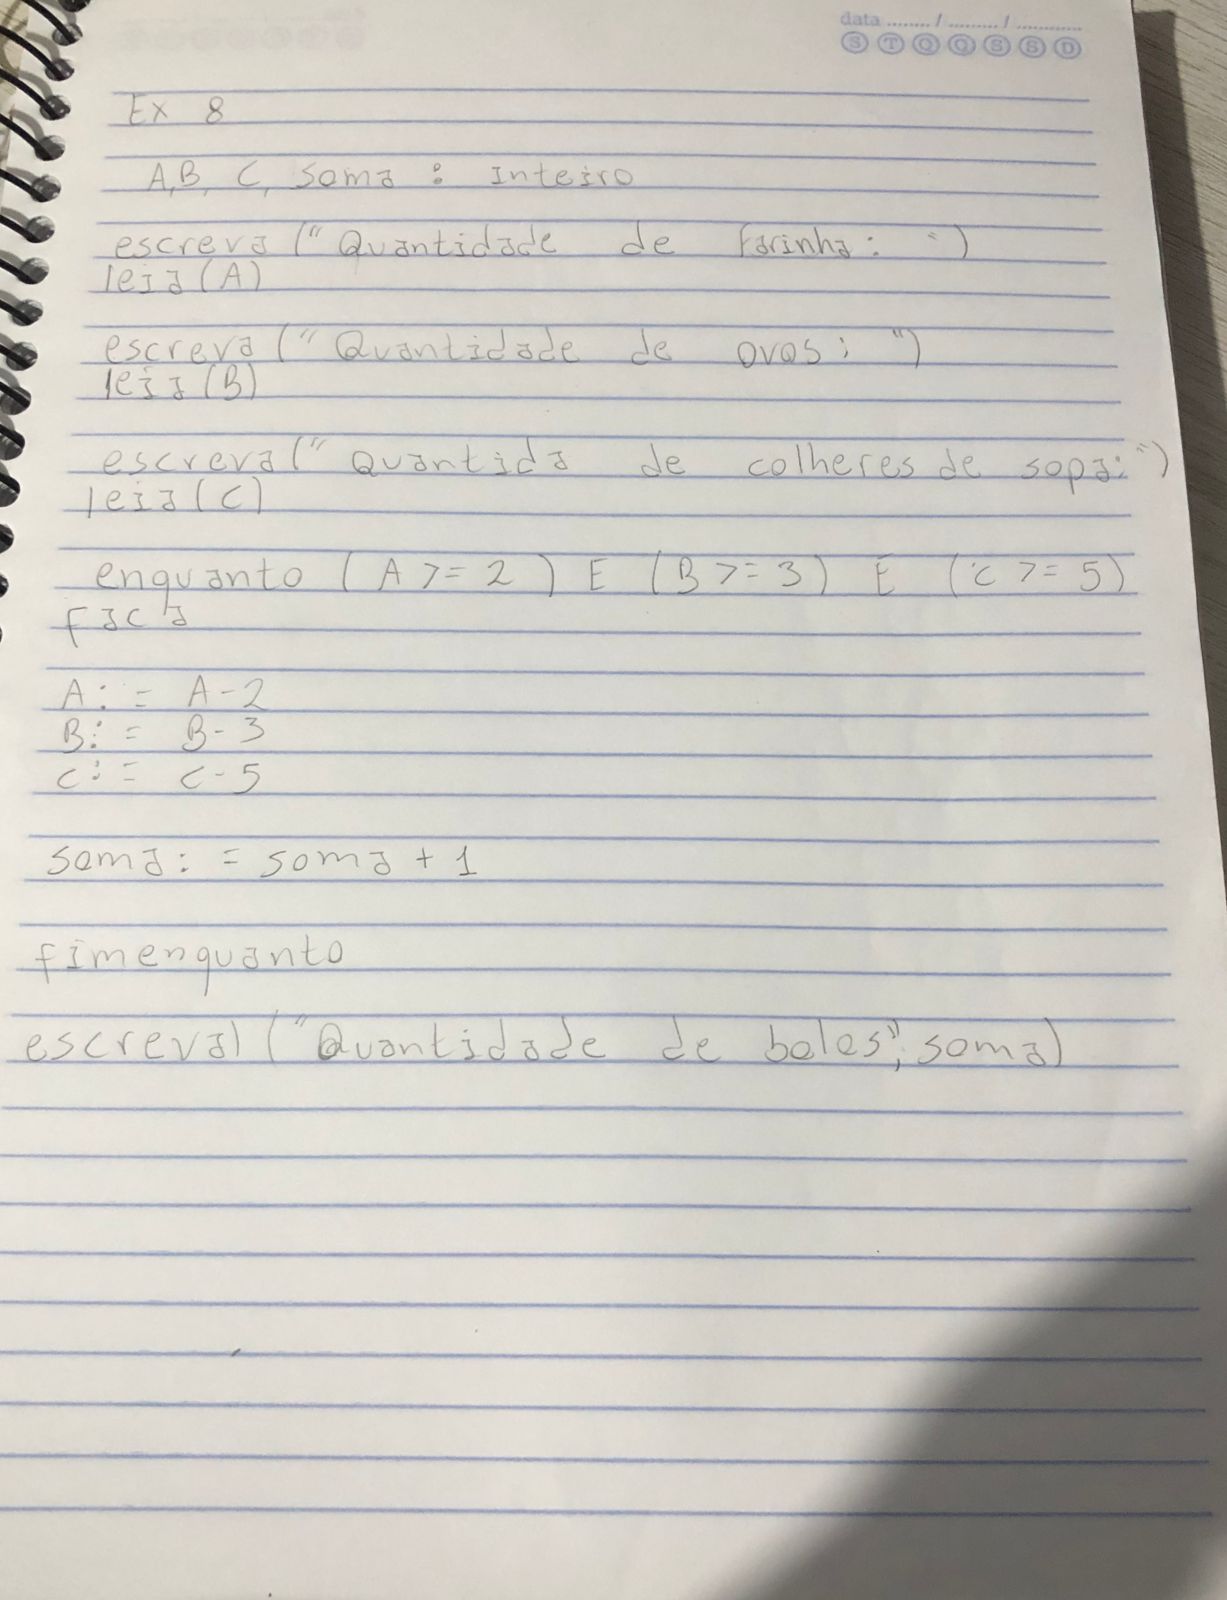 data ......../ ........../ ............
S T Q Q S S D
Ex 8
A,B, C, soma : Inteiro
escreva ("Quantidade de farinha: ")
leia (A)
escreva ("Quantidade de ovos: ")
leia (B)
escreva(" Quantida de colheres de sopa:")
leia (C)
enquanto (A >= 2) E (B >= 3) E (C >= 5)
faca
A: = A-2
B: = B-3
C: = C-5
soma: = soma + 1
fimenquanto
escreval ("Quantidade de bolos", soma)